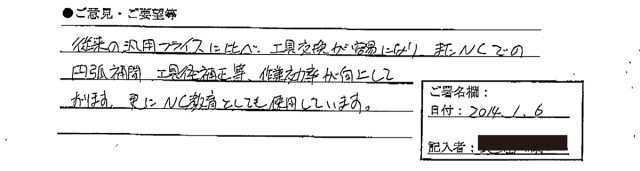 ●ご意見・ご要望等
従来の汎用フライスに比べ、工具交換が容易になり またNCでの
円弧補間、工具径補正等、作業効率が向上して
おります。更にNC教育としても使用しています。
ご署名欄：
日付：2014.1.6
記入者：